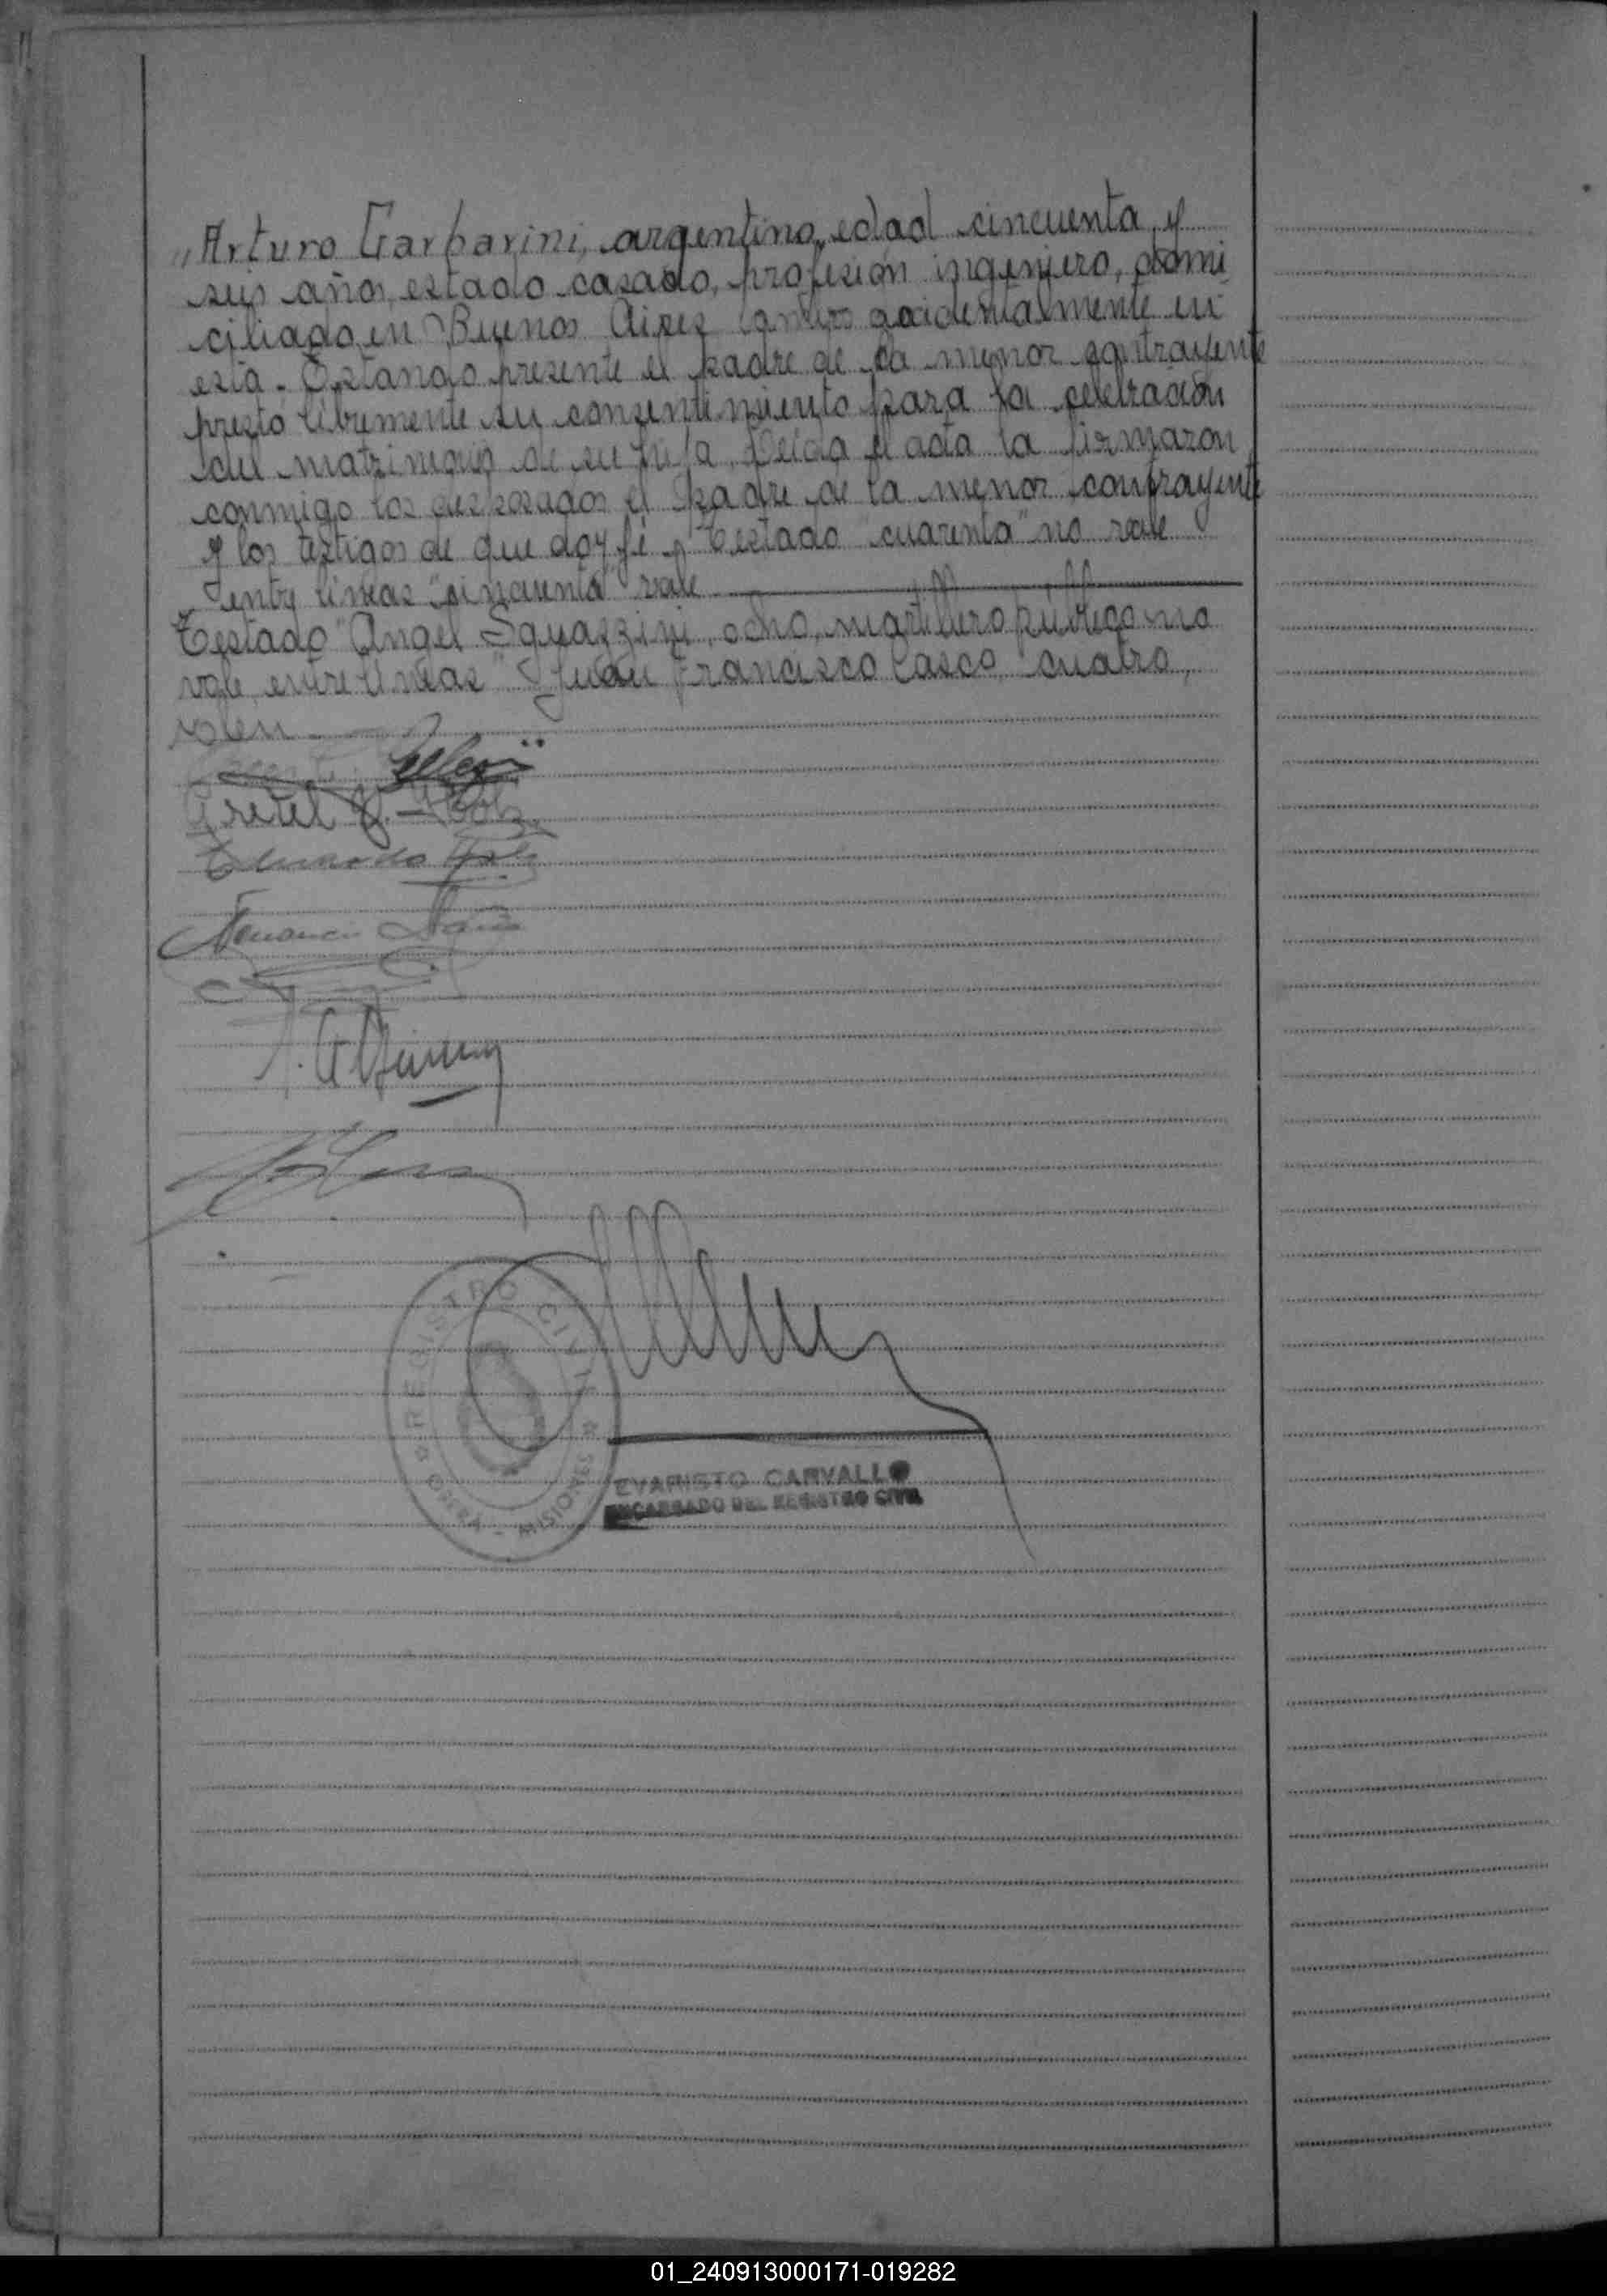 „Arturo Garbarini, argentino, edad cincuenta y
seis años, estado casado, profesión ingeniero, domi
ciliado en Buenos Aires accidentalmente en
esta. Estando presente el padre de la menor contrayente
presto libremente su consentimiento para la celebración
del matrimonio de su hija. Leida el acta la firmaron
conmigo los desposados el padre de la menor contrayente
y los testigos de que doy fé. Testado "cuarenta" no vale
entre lineas "cincuenta" vale
Testado "Angel Squazzini, ocho, martillero publico no
vale, entre lineas "Juan Francisco Casco, cuatro,
valen.
Gretel
REGISTRO CIVIL
OBERA - MISIONES
EVARISTO CARVALLO
ENCARGADO DEL REGISTRO CIVIL
01_240913000171-019282